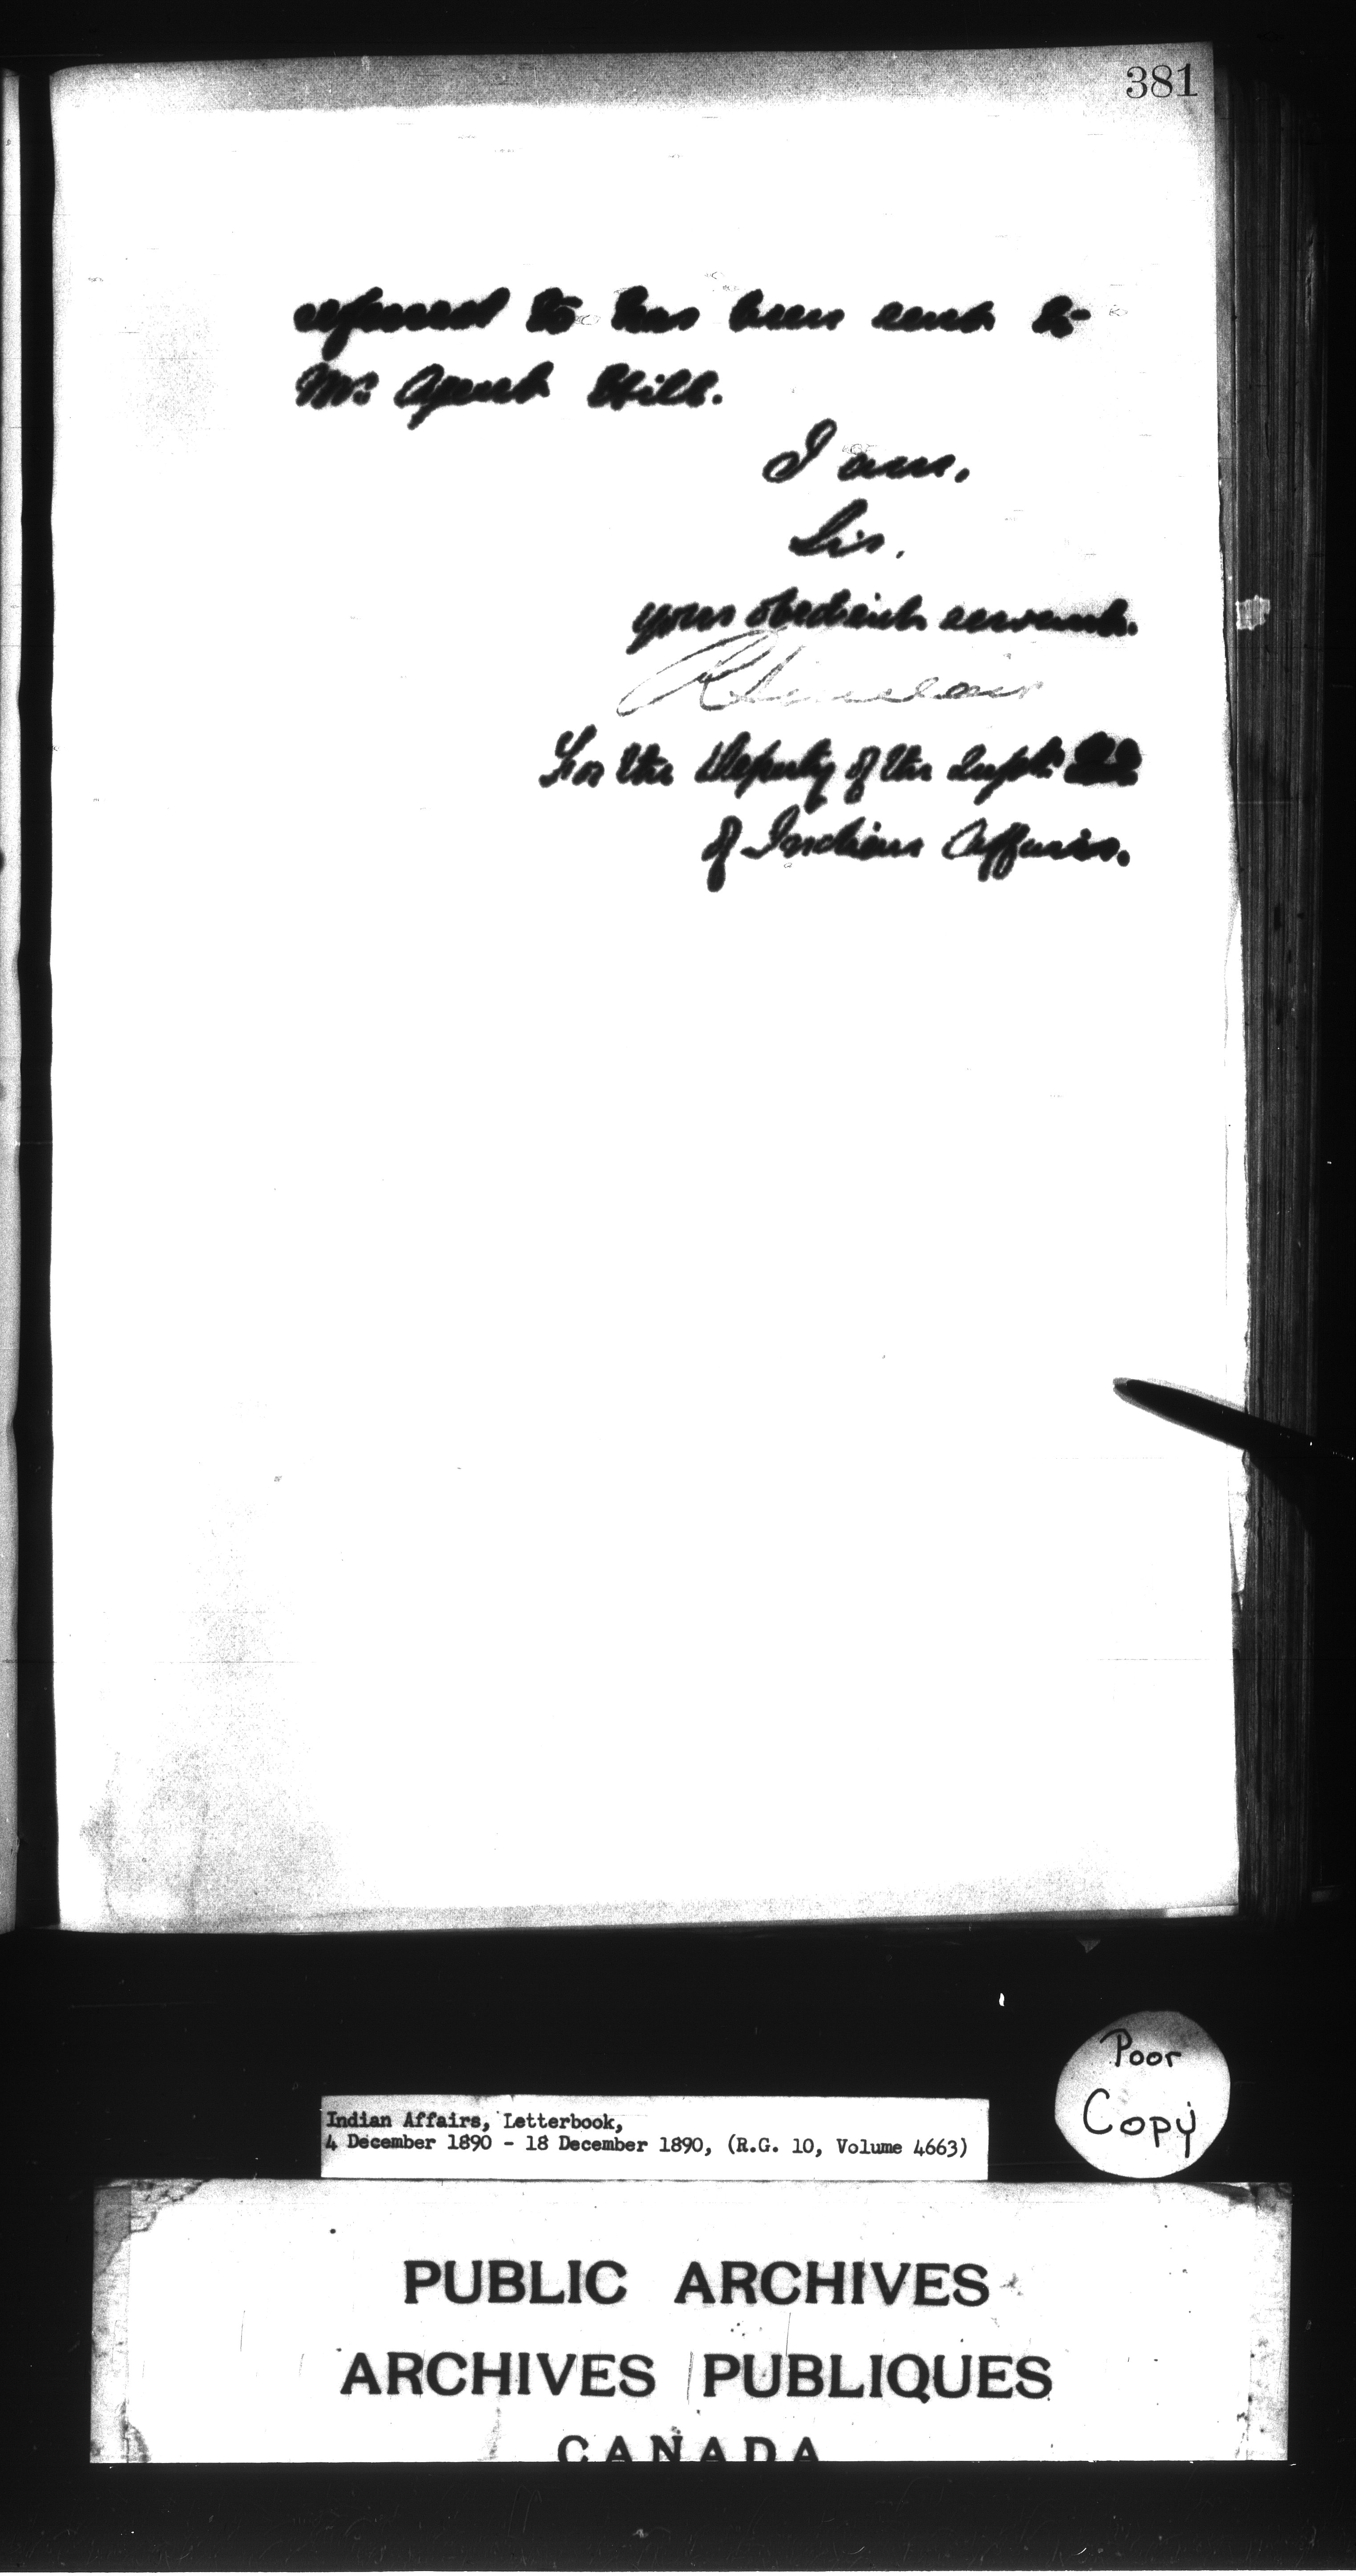 381
referred to has been sent to
Mr. Agent Hill.
I am,
Sir,
your obedient servant.
R Sinclair
For the Deputy of the Supt.
of Indian Affairs.
Poor
Copy
Indian Affairs, Letterbook,
4 December 1890 - 18 December 1890, (R.G. 10, Volume 4663)
PUBLIC ARCHIVES
ARCHIVES PUBLIQUES
CANADA